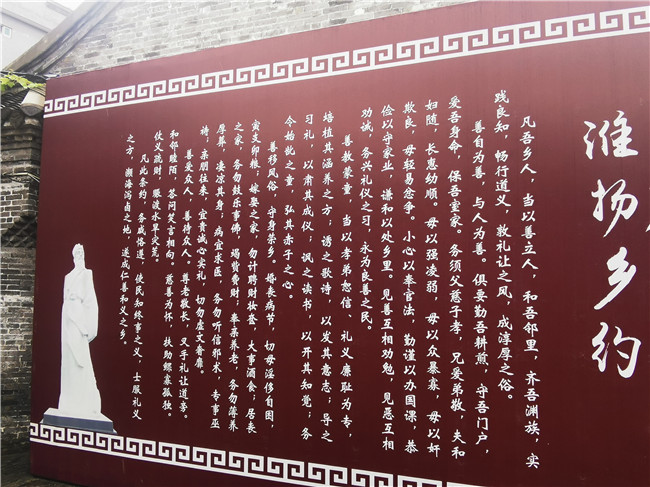 淮扬乡约
凡吾乡人，当以善立人，和吾邻里，齐吾渊族，实
践良知，畅行道义，敦礼让之风，成淳厚之俗。
善自为善，与人为善。俱要勤吾耕煎，守吾门户，
爱吾身命，保吾室家。务须父慈子孝，兄爱弟敬，夫和
妇随，长惠幼顺。毋以强凌弱，毋以众暴寡，毋以奸
欺良，毋轻易忿争。小心以奉官法，勤谨以办国课，恭
俭以守家业，谦和以处乡里。见善互相劝勉，见恶互相
劝诫，务兴礼仪之习，永为良善之民。
善教蒙童，当以孝弟恕信、礼义廉耻为专，
培植其涵养之方；诱之歌诗，以发其意志；导之
习礼，以肃其成仪；讽之读书，以开其知觉；务
今始龀之童，弘其赤子之心。
善移风俗，守身荣乡。婚丧有节，切毋淫侈自困，
寅支卯粮；嫁娶之家，勿计聘财妆奁，大事酒食；居丧
之家，务勿鼓乐事佛，竭赀费财；奉亲养老，务勿薄养
厚葬，凄凉其身；病宜求医，务勿听信邪术，专事巫
祷；亲朋往来，宜贵诚心实礼，切勿虚文奢靡。
善爱众人，善待众人。尊老敬长，叉手礼让道旁。
和邻睦陌，答问笑言相向。慈善为怀，扶助鳏寡孤独。
仗义疏财，赈波水旱灾荒。
凡此条约，务咸恪遵，使民知终事之义，士服礼义
之方，濒海泻卤之地，遂成仁善和义之乡。